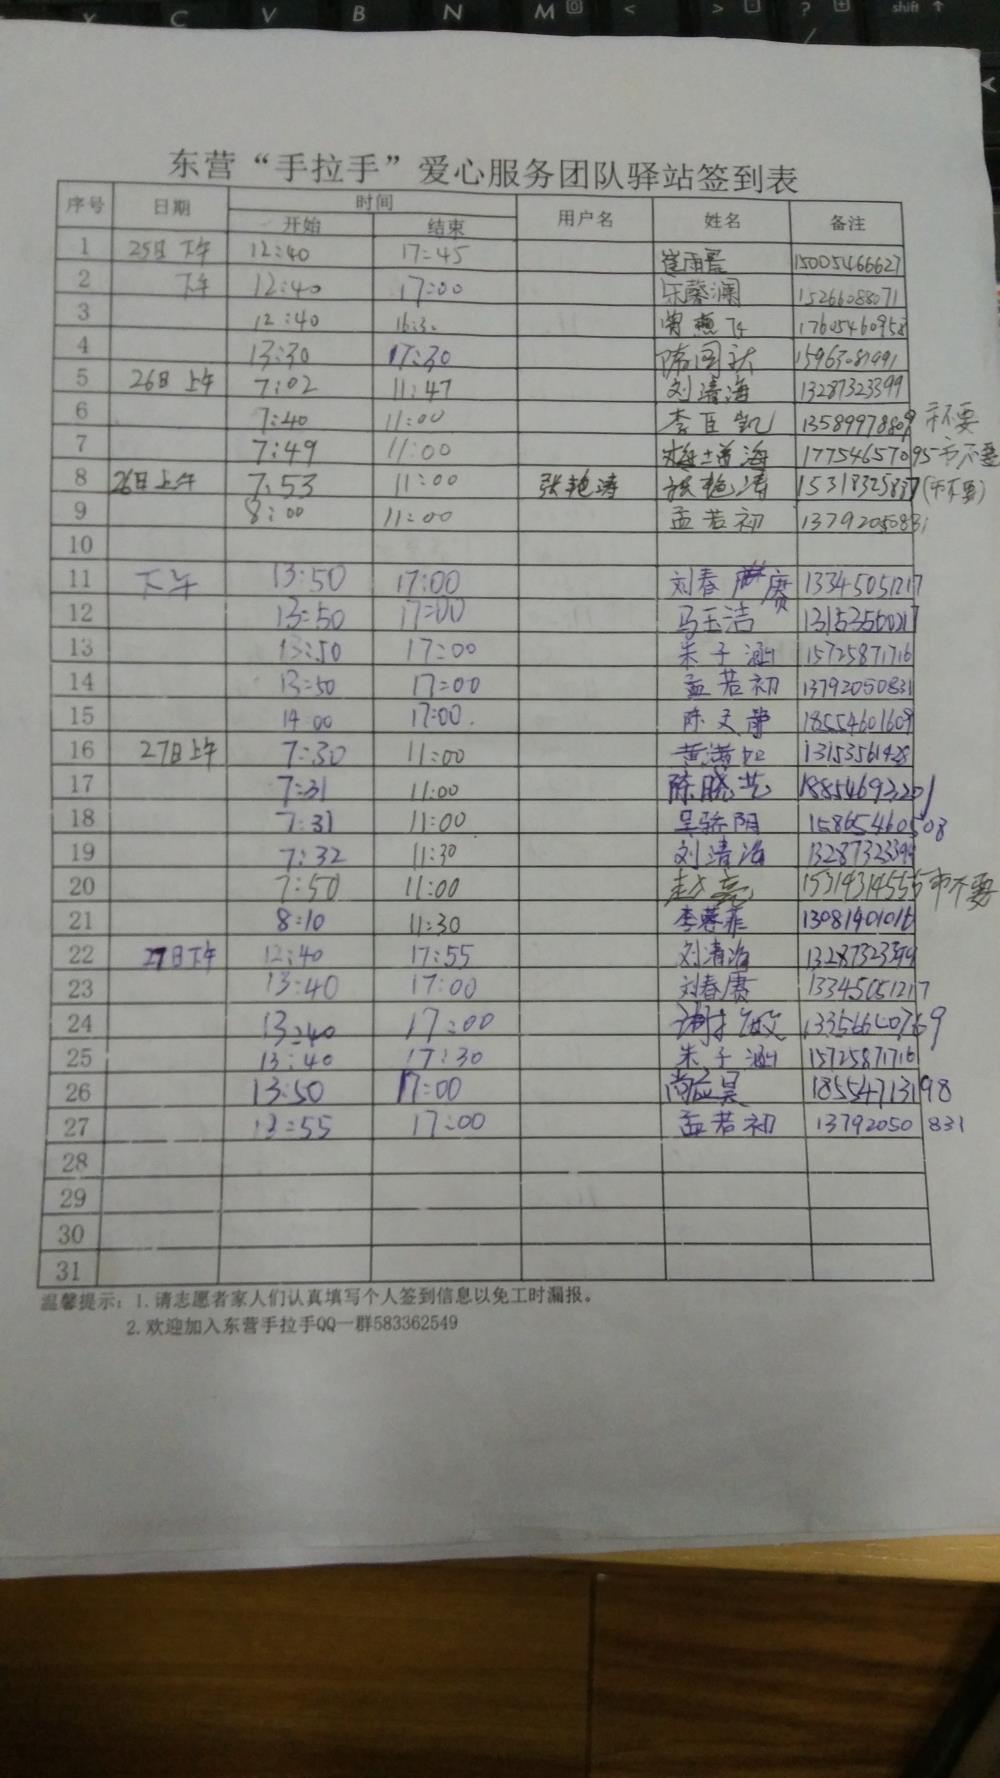 东营“手拉手”爱心服务团队驿站签到表
序号 日期 时间 用户名 姓名 备注
开始 结束
1 25日下午 12:40 17:45 崔雨晨 15005466627
2 下午 12:40 17:00 宋馨澜 15266088071
3 12:40 16:30 17605460958
4 13:30 17:30 陈国 15963081991
5 26日上午 7:02 11:47 刘清海 13287323399
6 7:40 11:00 李臣凯 13589978809 市不要
7 7:49 11:00 17754657095 市不要
8 26日上午 7:53 11:00 张艳涛 张艳涛 15318325837 (市不要)
9 8:00 11:00 孟若初 13792050831
10
11 下午 13:50 17:00 刘春赓 13345051217
12 13:50 17:00 马玉洁
13 13:50 17:00 朱子涵 15725871716
14 13:50 17:00 孟若初 13792050831
15 14:00 17:00 陈文静 18554601609
16 27日上午 7:30 11:00 13153561428
17 7:31 11:00 陈晓艺 18854693201
18 7:31 11:00 吴骄阴 15865460508
19 7:32 11:30 刘清海 13287323399
20 7:50 11:00 赵亮 15314314555 市不要
21 8:10 11:30 李蓉菲 13081401016
22 27日下午 12:40 17:55 刘清海 13287323399
23 13:40 17:00 刘春赓 13345051217
24 13:40 17:00 13356640769
25 13:40 17:30 朱子涵 15725871716
26 13:50 17:00 尚应昊 18554713198
27 13:55 17:00 孟若初 13792050831
28
29
30
31
温馨提示：1.请志愿者家人们认真填写个人签到信息以免工时漏报。
2.欢迎加入东营手拉手QQ一群583362549